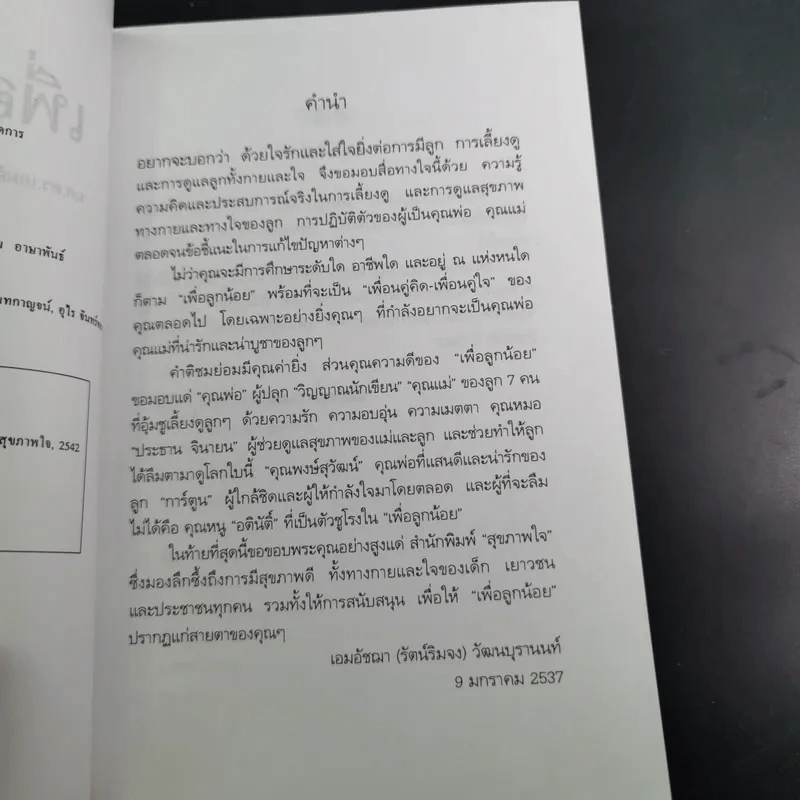 เพื่อ
อาษาพันธ์
สุขภาพใจ, 2542
คำนำ
อยากจะบอกว่า ด้วยใจรักและใส่ใจยิ่งต่อการมีลูก การเลี้ยงดู
และการดูแลลูกทั้งกายและใจ จึงขอมอบสื่อทางใจนี้ด้วย ความรู้
ความคิดและประสบการณ์จริงในการเลี้ยงดู และการดูแลสุขภาพ
ทางกายและทางใจของลูก การปฏิบัติตัวของผู้เป็นคุณพ่อ คุณแม่
ตลอดจนข้อชี้แนะในการแก้ไขปัญหาต่างๆ
ไม่ว่าคุณจะมีการศึกษาระดับใด อาชีพใด และอยู่ ณ แห่งหนใด
ก็ตาม "เพื่อลูกน้อย" พร้อมที่จะเป็น "เพื่อนคู่คิด-เพื่อนคู่ใจ" ของ
คุณตลอดไป โดยเฉพาะอย่างยิ่งคุณๆ ที่กำลังอยากจะเป็นคุณพ่อ
คุณแม่ที่น่ารักและน่าบูชาของลูกๆ
คำติชมย่อมมีคุณค่ายิ่ง ส่วนคุณความดีของ "เพื่อลูกน้อย"
ขอมอบแด่ "คุณพ่อ" ผู้ปลุก "วิญญาณนักเขียน" "คุณแม่" ของลูก 7 คน
ที่อุ้มชูเลี้ยงดูลูกๆ ด้วยความรัก ความอบอุ่น ความเมตตา คุณหมอ
"ประธาน จินายน" ผู้ช่วยดูแลสุขภาพของแม่และลูก และช่วยทำให้ลูก
ได้ลืมตามาดูโลกใบนี้ "คุณพงษ์สุวัฒน์" คุณพ่อที่แสนดีและน่ารักของ
ลูก "การ์ตูน" ผู้ใกล้ชิดและผู้ให้กำลังใจมาโดยตลอด และผู้ที่จะลืม
ไม่ได้คือ คุณหนู "อตินัติ์" ที่เป็นตัวชูโรงใน "เพื่อลูกน้อย"
ในท้ายที่สุดนี้ขอขอบพระคุณอย่างสูงแด่ สำนักพิมพ์ "สุขภาพใจ"
ซึ่งมองลึกซึ้งถึงการมีสุขภาพดี ทั้งทางกายและใจของเด็ก เยาวชน
และประชาชนทุกคน รวมทั้งให้การสนับสนุน เพื่อให้ "เพื่อลูกน้อย"
ปรากฏแก่สายตาของคุณๆ
เอมอัชฌา (รัตน์ริมจง) วัฒนบุรานนท์
9 มกราคม 2537